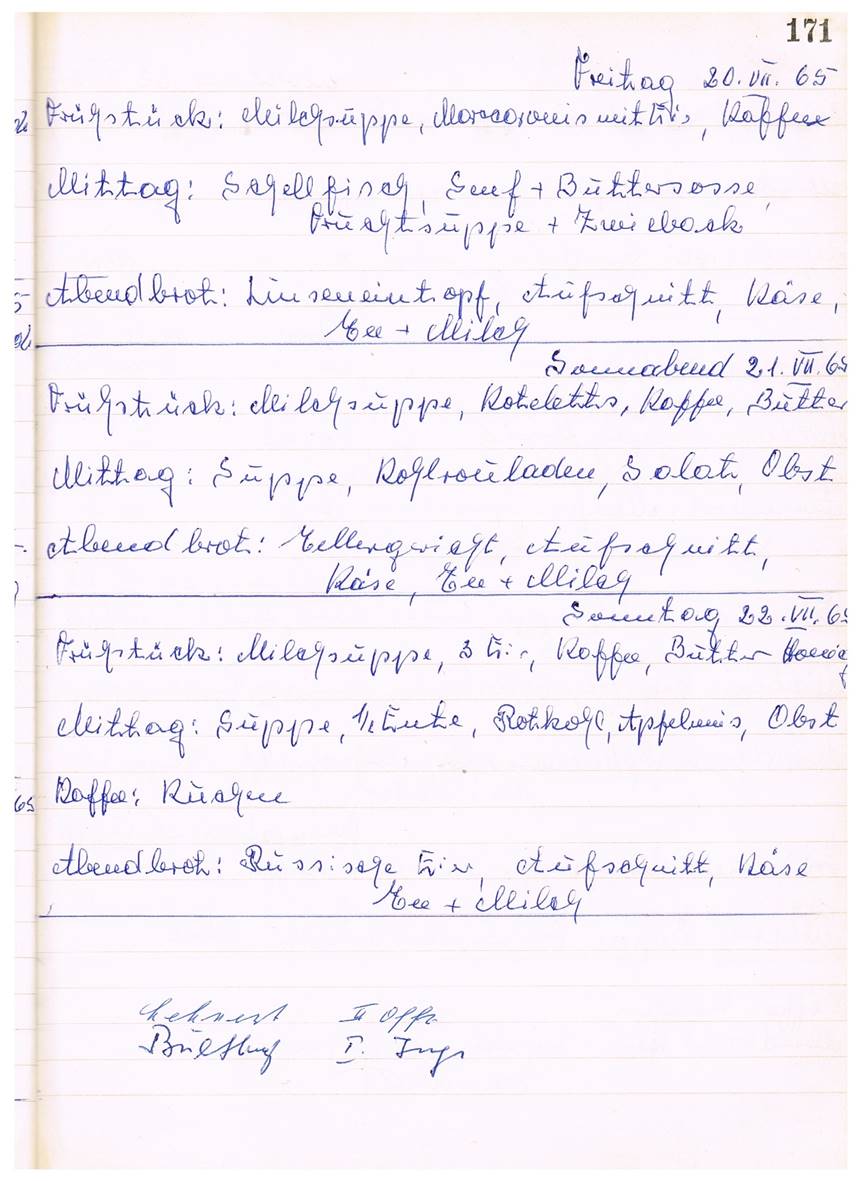 171
Freitag 20. VII. 65
Frühstück: Milchsuppe, Maccaronis mit Eis, Kaffee
Mittag: Schellfisch, Senf + Buttersosse,
Fruchtsuppe + Zwieback
Abendbrot: Linseneintopf, Aufschnitt, Käse,
Tee + Milch
Sonnabend 21. VII. 65
Frühstück: Milchsuppe, Koteletts, Kaffee, Butter
Mittag: Suppe, Kohlrouladen, Salat, Obst
Abendbrot: Tellergericht, Aufschnitt,
Käse, Tee + Milch
Sonntag 22. VII. 65
Frühstück: Milchsuppe, 3 Eier, Kaffee, Butter Honig
Mittag: Suppe, 1/2 Ente, Rotkohl, Apfelmus, Obst
65
Kaffee: Kuchen
Abendbrot: Russische Eier, Aufschnitt, Käse
Tee + Milch
II Offz
I. Ing